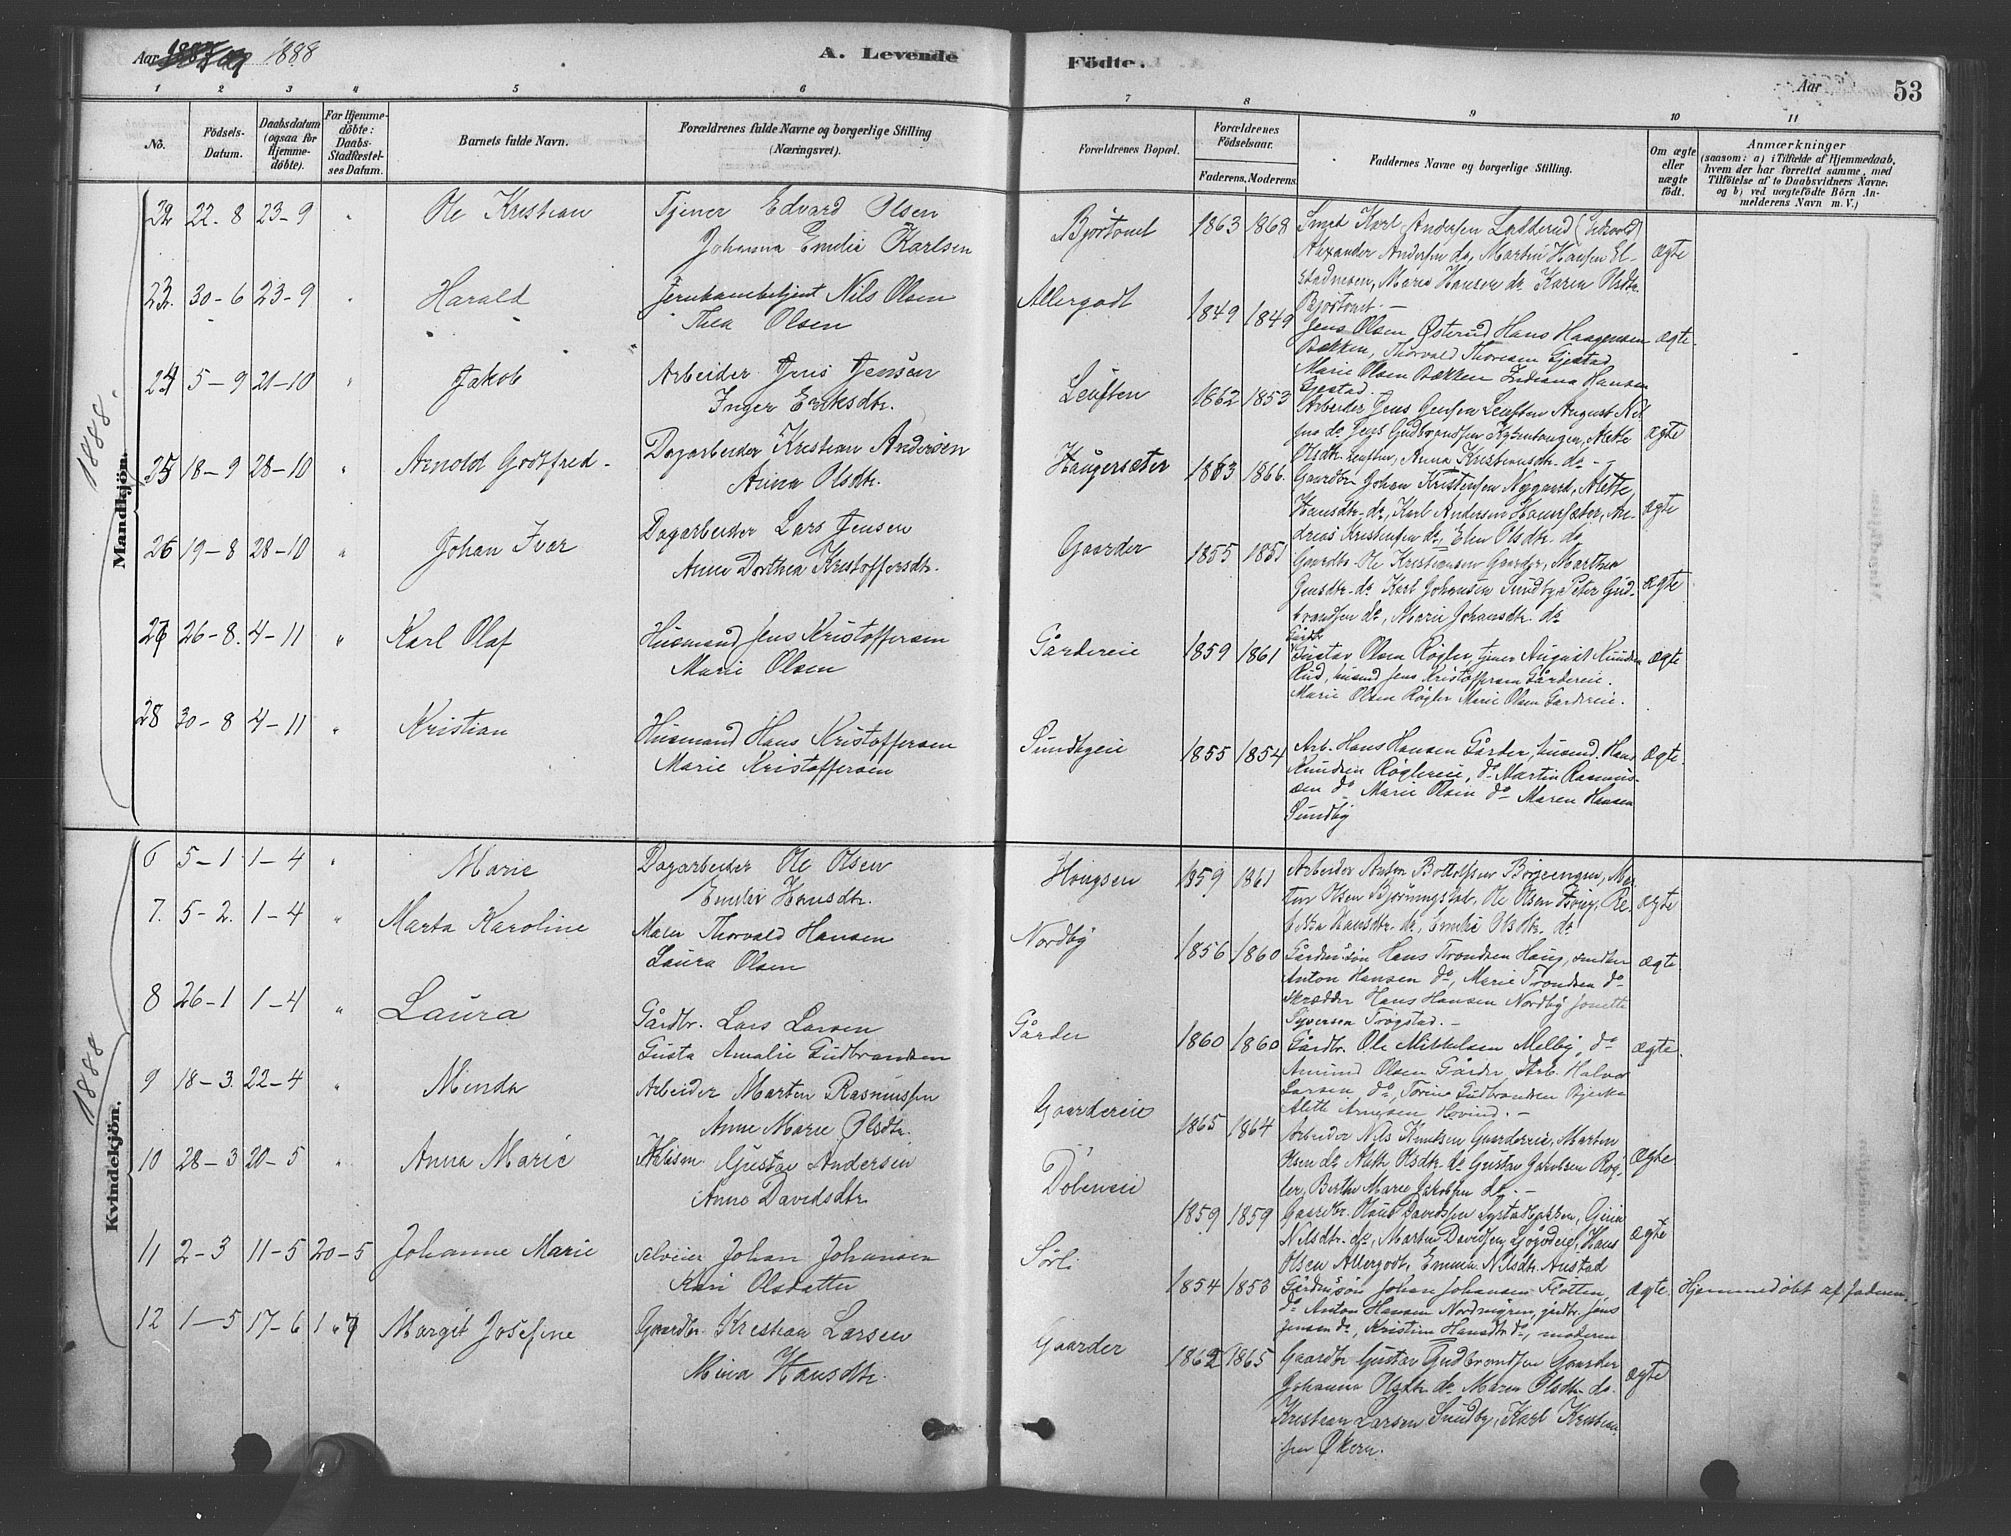 Aar 1888
A. Levende
Födte.
Aar
53
1 2 3 4 5 6 7 8 9 10 11
No.
Födsels-Datum.
Daabsdatum (ogsaa for Hjemme-döbte).
For Hjemme-döbte: Daabs-Stadfæstel-ses Datum.
Barnets fulde Navn.
Forældrenes fulde Navne og borgerlige Stilling (Næringsvei).
Forældrenes Bopæl.
Forældrenes Födselsaar.
Faderens. Moderens.
Faddernes Navne og borgerlige Stilling.
Om ægte eller uægte födt.
Anmærkninger
(saasom: a) i Tilfælde af Hjemmedaab, hvem der har forrettet samme, med Tilföielse af to Daabsvidners Navne; og b) ved uægtefödte Börn An-melderens Navn m. V.)
1888.
Mandkjön.
22 22-8 23-9 " Ole Kristian Tjener Edvard Olsen
Johanna Emilie Karlsen
Björtomt 1863 1868 Smed Karl Andersen Ladderud (Eidsvold)
Alexander Andersen do, Martin Hansen El-
stadneien, Marie Hansen do Karen Olsdtr.
Bjørtomt.—
ægte
23. 30-6 23-9 " Harald Jernbanebetjent Nils Olsen
Thea Olsen
Allergodt 1849 1849 Jens Olsen Østerud Hans Haagensen
Bækken, Thorvald Thoresen Gjestad
Marie Olsen Bækken Indiana Hansen
Gjestad.
ægte.
24 5-9 21-10 " Jakob Arbeider Jens Jensen
Inger Eriksdtr.
Leuften 1862 1853 Arbeider Jens Jensen Leuften August Nil
sen do Jens Gudbrandsen Alette
Olsdtr. Leuften, Anna Kristiansdtr. do --
ægte
25 18-9 28-10 " Arnold Godtfred. Dagarbeider Kristian Andersen
Anna Olsdtr.
Haugersæter 1863 1866. Gaardbr Johan Kristensen Nygaard, Alette
Hansdtr. do, Karl Andersen An-
dreas Kristensen do, Elen Olsdtr. do
ægte
26 19-8 28-10 " Johan Ivar Dagarbeider Lars Jensen
Anne Dorthea Kristoffersdtr.
Gaarder 1855 1851 Gaardbr. Ole Kristiansen Gaarder, Marthea
Jensdtr. do Karl Johansen Sundby Peter Gud-
brandsen do, Marie Johansdtr. do
ægte
27 26-8. 4-11 " Karl Olaf Husmand Jens Kristoffersen
Marie Olsen
Gårdereie 1859 1861 Gårdbr
Gustav Olsen Røgler, tjener August Knudsen
Rud, husmd Jens Kristoffersen Gårdereie.
Marie Olsen Røgler Marie Olsen Gårdereie.
ægte
28 30-8 4-11 " Kristian Husmand Hans Kristoffersen
Marie Kristoffersen
Sundbyeie 1855 1854 Arb. Hans Hansen Gårder, husmd. Hans
Knudsen Røglereie, do Martin Rasmus-
sen do Marie Olsen do Maren Hansen
Sundby
ægte.
1888
Kvindekjön.
6 5-1 1-4 " Marie Dagarbeider Ole Olsen
Emilie Hansdtr.
Hougsen 1859 1861 Arbeider Anton Bottolfsen Mar-
tin Olsen Bjørningstad, Ole Olsen Re-
bekka Hansdtr. do, Emilie Olsdtr. do
ægte
7. 5-2. 1-4 " Marta Karoline Maler Thorvald Hansen
Laura Olsen
Nordby 1856 1860 Gårdmsøn Hans Trondsen Haug, snedker
Anton Hansen do, Marie Trondsen do
Skrædder Hans Hansen Nordby Jonette
Syversen Trøgstad.—
ægte.
8 26-1 1-4 " Laura Gårdbr. Lars Larsen
Gusta Amalie Gudbrandsen
Gårder 1860 1860 Gårdbr. Ole Mikkelsen Melby, do
Amund Olsen Gårder Arb. Halvor
Larsen do, Torine Gudbrandsen Bjerke
Aleth Arnesen Hovind.—
ægte.
9 18-3. 22-4 " Minda Arbeider Marten Rasmussen
Anne Marie Olsdtr.
Gaardereie 1865 1864 Arbeider Nils Knutsen Gaardereie, Marten
Olsen do Aleth Olsdtr. do Gustav Jakobsen Røg-
ler, Berthe Marie Jakobsen do.—
ægte
10 28-3 20-5 " Anna Marie Husm Gustav Andersen
Anne Davidsdtr.
Dölereie 1859 1859 Gaardbr. Olaus Davidsen Gina
Nilsdtr. do, Marten Davidsen Hans
Olsen Allergodt, Emma Nilsdtr. Austad
ægte
11 2-3 11-5 20-5 Johanne Marie selveier Johan Johansen
Kari Olsdatter
Sörli 1854 1853 Gårdmsøn Johan Johansen Flotten,
do Anton Hansen Nordengen, gårdbr. Jens
Jensen do, Kristine Hansdtr. do, moderen
ægte. Hjemmedøbt af Jordm.
12 1-5 17-6 1-7 Margit Josefine Gaardbr. Krestian Larsen
Mina Hansdtr.
Gaarder 1862 1865 Gaardbr Gustav Gudbrandsen Gaarder
Johanna Olsdtr. do Maren Olsdtr. do.
Krestian Larsen Sundby, Karl Kristian
sen Økern.
ægte